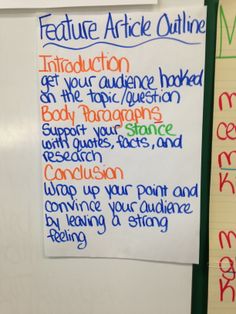 Feature Article Outline
Introduction
get your audience hooked
on the topic/question
Body Paragraphs
Support your stance
with quotes, facts, and
research
Conclusion
Wrap up your point and
convince your audience
by leaving a strong
feeling